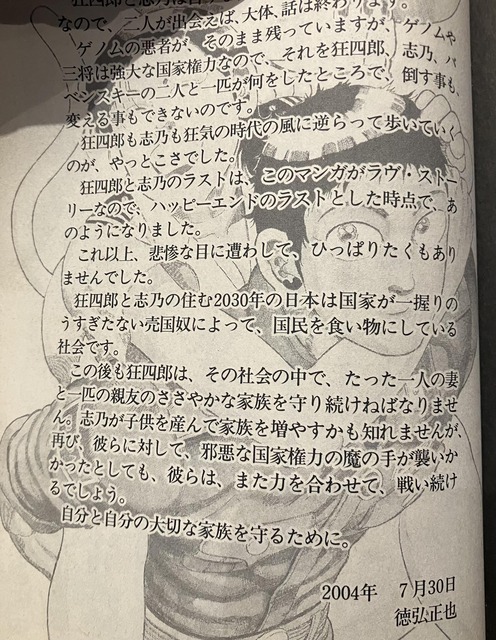 なので、二人が出会えば、大体、話は終わります。
ゲノムの悪者が、そのまま残っていますが、ゲノムや
三将は強大な国家権力なので、それを狂四郎、志乃、バ
ベンスキーの二人と一匹が何をしたところで、倒す事も、
変える事もできないのです。
狂四郎も志乃も狂気の時代の風に逆らって歩いていく
のが、やっとこさでした。
狂四郎と志乃のラストは、このマンガがラヴ・ストー
リーなので、ハッピーエンドのラストとした時点で、あ
のようになりました。
これ以上、悲惨な目に遭わして、ひっぱりたくもあり
ませんでした。
狂四郎と志乃の住む2030年の日本は国家が一握りの
うすぎたない売国奴によって、国民を食い物にしている
社会です。
この後も狂四郎は、その社会の中で、たった一人の妻
と一匹の親友のささやかな家族を守り続けねばなりませ
ん。志乃が子供を産んで家族を増やすかも知れませんが、
再び、彼らに対して、邪悪な国家権力の魔の手が襲いか
かったとしても、彼らは、また力を合わせて、戦い続け
るでしょう。
自分と自分の大切な家族を守るために。
2004年 7月30日
徳弘正也